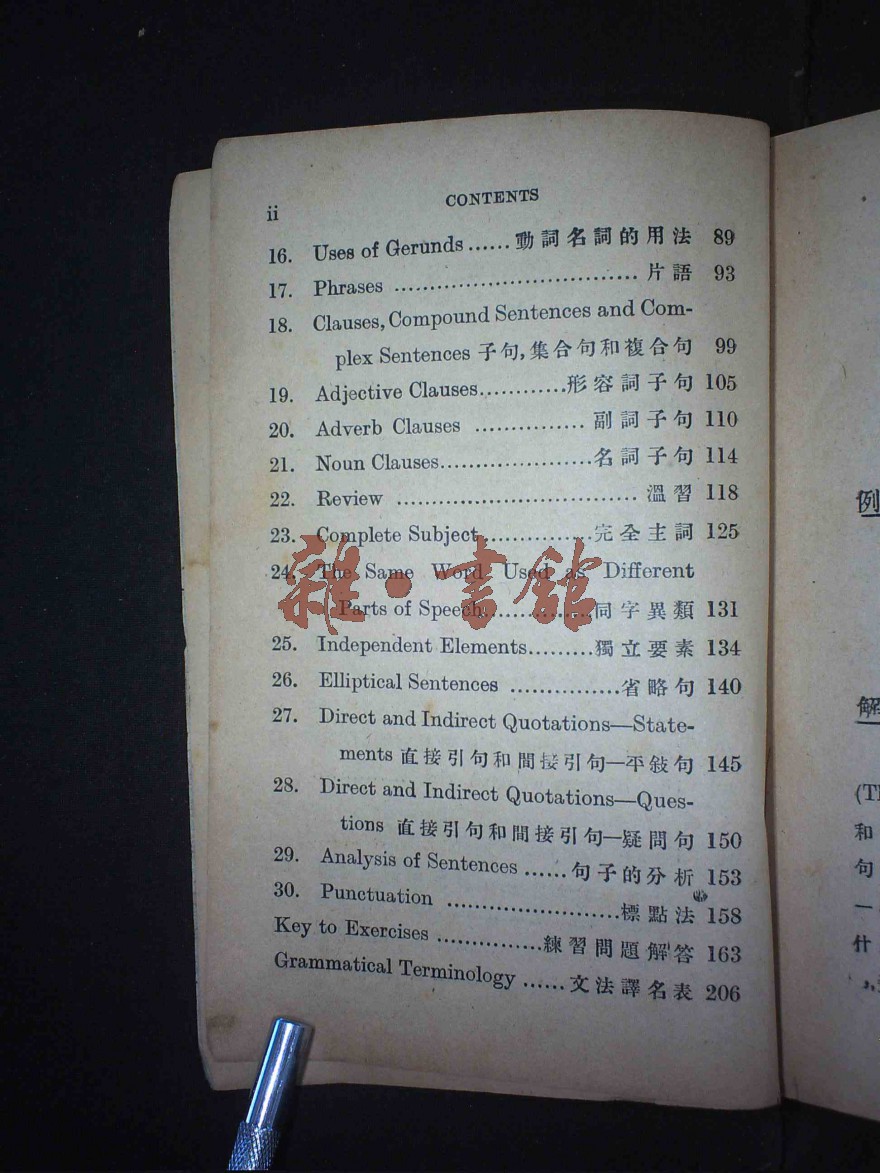 ii
CONTENTS
16. Uses of Gerunds ...... 動詞名詞的用法 89
17. Phrases .................................. 片語 93
18. Clauses, Compound Sentences and Com-
plex Sentences 子句,集合句和複合句 99
19. Adjective Clauses............形容詞子句 105
20. Adverb Clauses ................ 副詞子句 110
21. Noun Clauses......................名詞子句 114
22. Review .................................. 溫習 118
23. Complete Subject................完全主詞 125
24. The Same Word Used as Different
Parts of Speech................同字異類 131
25. Independent Elements.........獨立要素 134
26. Elliptical Sentences ................省略句 140
27. Direct and Indirect Quotations—State-
ments 直接引句和間接引句—平敍句 145
28. Direct and Indirect Quotations—Ques-
tions 直接引句和間接引句—疑問句 150
29. Analysis of Sentences ...... 句子的分析 153
30. Punctuation .........................標點法 158
Key to Exercises ...............練習問題解答 163
Grammatical Terminology ...... 文法譯名表 206
雜·書館
例
解
(T
和
句
一
什